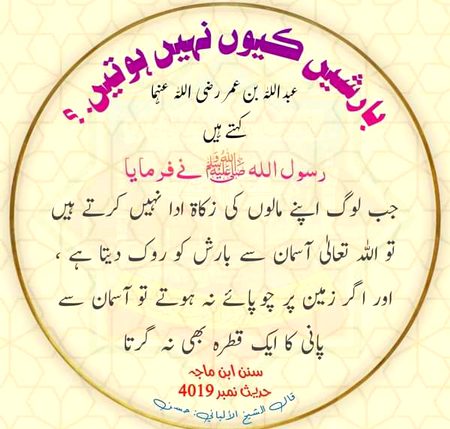 بارشیں کیوں نہیں ہوتیں..؟
عبداللہ بن عمر رضی اللہ عنہما
کہتے ہیں
رسول اللہ ﷺ نے فرمایا
جب لوگ اپنے مالوں کی زکاۃ ادا نہیں کرتے ہیں
تو اللہ تعالیٰ آسمان سے بارش کو روک دیتا ہے ،
اور اگر زمین پر چوپائے نہ ہوتے تو آسمان سے
پانی کا ایک قطرہ بھی نہ گرتا
سنن ابن ماجہ
حدیث نمبر 4019
قال الشيخ الألباني: حسن